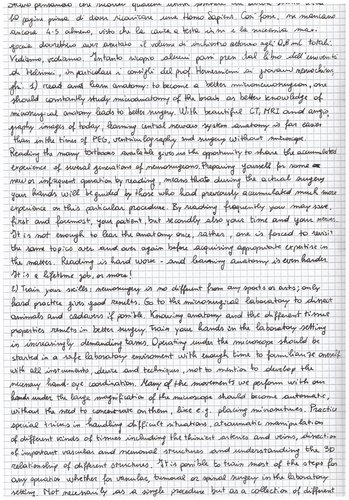 60 pagine prima di dover ricaricare una Homo Sapiens. Con fose, ne mancano
ancora 4-5 almeno, visto che la carta a testa in su e la me
gocce dovrebbero aver portato il volume di inchiostro attorno agli 0,8 ml totali.
Vediamo, vediamo. Intanto scopro alcuni passi presi dal libro dell'università
di Helsinki, in particolare i consigli del prof. Hernesniemi ai giovani neurochirur-
ghi. 1) read and learn anatomy: to become a better microneurosurgeon, one
should constantly study microanatomy of the brain as better knowledge of
microsurgical anatomy leads to better surgery. With beautiful CT, MRI and angio-
graphy images of today, learning central nervous system anatomy is far easier
than in the times of PEG, ventriculography and surgery without microscope.
Reading the many textbooks available gives us the opportunity to share the accumulated
experience of several generation of neurosurgeons. Preparing yourself for some
new or infrequent operation by reading, means that during the actual surgery
your hands will be guided by those who had previously accumulated much more
experience on this particular procedure. By reading frequently you may save,
first and foremost, your patient, but secondly also your time and your nerves.
It is not enough to learn the anatomy once, rather, one is forced to revisit
the same topics over and over again before acquiring appropriate expertise in
the matter. Reading is hard work - and learning anatomy is even harder.
It is a lifetime job, or more!
2) Train your skills: neurosurgery is no different from any sports or arts; only
hard practice gives good results. Go to the microsurgical laboratory to dissect
animals and cadavers if possible. Knowing anatomy and the different tissue
properties results in better surgery. Train your hands in the laboratory setting
in increasingly demanding tasks. Operating under the microscope should be
started in a safe laboratory enviroment with enough time to familiarize oneself
with all instruments, device and techniques, not to mention to develop the
necessary hand-eye coordination. Many of the movements we perform with our
hands under the large magnification of the microscope should become automatic,
without the need to concentrate on them, like e.g. placing minisutures. Practice
special tricks in handling difficult situations, atraumatic manipulation
of different kinds of tissues including the thinnest arteries and veins, dissection
of important vascular and neuronal structures and understanding the 3D
relationship of different structures. It is possible to train most of the steps for
any operation whether for vascular, tumoral or spinal surgery in the laboratory
setting. Not necessarily as a single procedure but as a collection of different